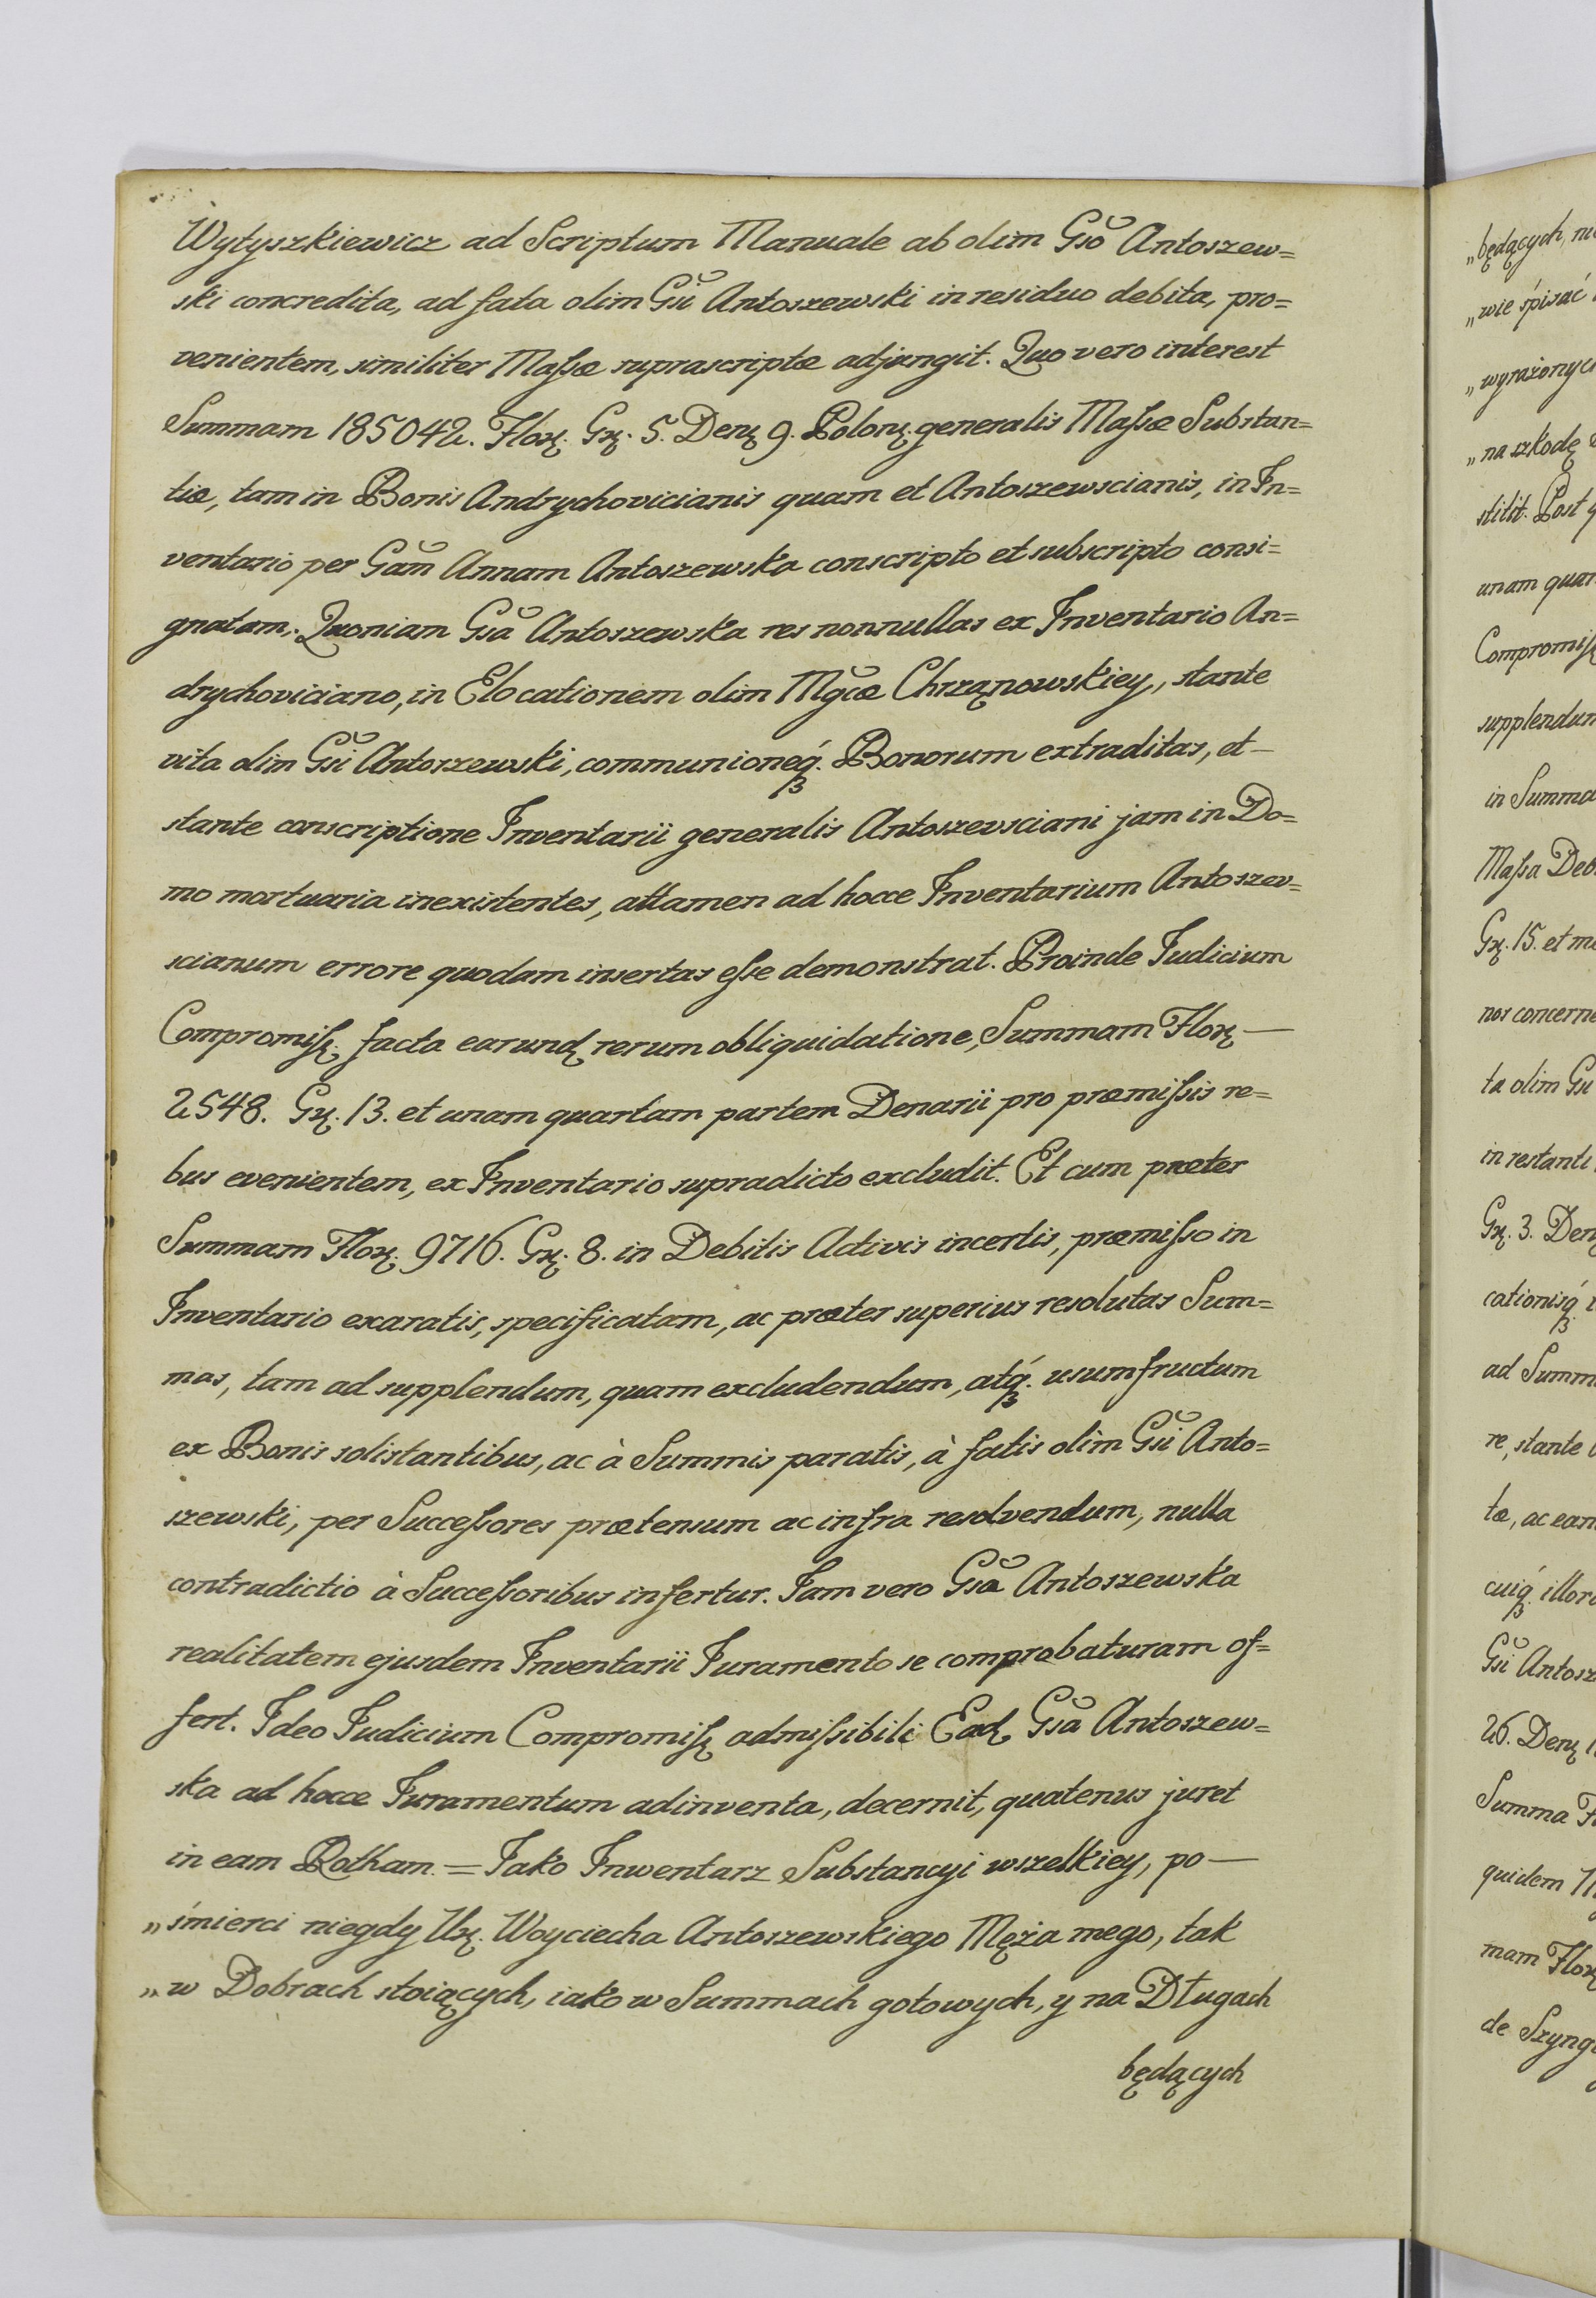 Wytyszkiewicz ad Scriptum Manuale ab olim Gso Antoszew=
ski concredita, ad fata olim Gsi Antoszewski in residuo debita, pro=
venientem, similiter Maſsæ suprascriptæ adjungit. Quo vero interest
Summam 185042. Flor. Gr. 5. Den. 9. Polon. generalis Maſsæ Substan=
tiæ, tam in Bonis Andrychovicianis quam et Antoszewscianis, in In=
ventario per Gam Annam Antoszewska conscripto et subscripto consi=
gnatam; Quoniam Gsa Antoszewska res nonnullas ex Inventario An=
drychoviciano, in Elocationem olim Mgcæ Chrząnowskiey, stante
vita olim Gsi Antoszewski, communioneq́ꝫ. Bonorum extraditas, et —
stante conscriptione Inventarii generalis Antoszevsciani jam in Do=
mo mortuaria inexistentes, attamen ad hocce Inventarium Antoszev=
scianum errore quodam insertas eſse demonstrat. Proinde Iudicium
Compromiſs. facta earund. rerum obliquidatione, Summam Flor. —
2548. Gr. 13. et unam quartam partem Denarii pro præmiſsis re=
bus evenientem, ex Inventario supradicto excludit. Et cum præter
Summam Flor. 9716. Gr. 8. in Debitis Activis incertis, præmiſso in
Inventario exaratis, specificatam, ac præter superius resolutas Sum=
mas, tam ad supplendum, quam excludendum, atq́ꝫ. usumfructum
ex Bonis solistantibus, ac à Summis paratis, à fatis olim Gsi Anto=
szewski, per Succeſsores prætensum ac infra resolvendum, nulla
contradictio à Succeſsoribus infertur. Iam vero Gsa Antoszewska
realitatem ejusdem Inventarii Iuramento se comprobaturam of=
fert. Ideo Iudicium Compromiſs. admiſsibili Ead. Gsa Antoszew=
ska ad hocce Iuramentum adinventa, decernit, quatenus juret
in eam Rotham = Iako Inwentarz Substancyi wszelkiey, po —
„śmierci niegdy Ur. Woyciecha Antoszewskiego Męża mego, tak
„w Dobrach stoiących, iako w Summach gotowych, y na Długach
będących
„będących,
„wie spisać
„wyrażonych
„na szkodę
stitit. Post
unam quar
Compromiſs
supplendum
in Summa
Maſsa Deb
Gr. 15. et
nos concerne
ta olim Gsi
in restanti
Gr. 3. Den.
cationisq́ꝫ
ad Summ
re, stante
tæ, ac ean
cuiq́ꝫ. illor
Gsi Antosz
26. Den.
Summa
quidem
mam Flor.
de Szyng